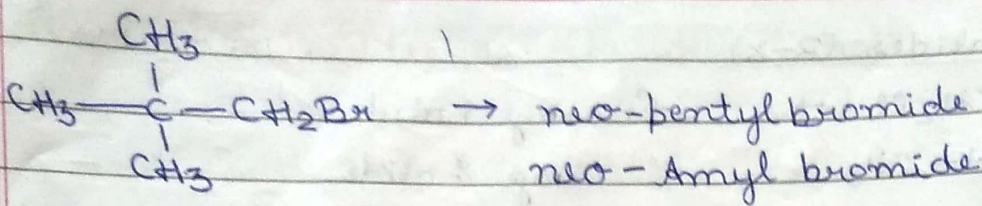 CH3
CH3—C—CH2Br → neo-pentyl bromide
CH3 neo-Amyl bromide